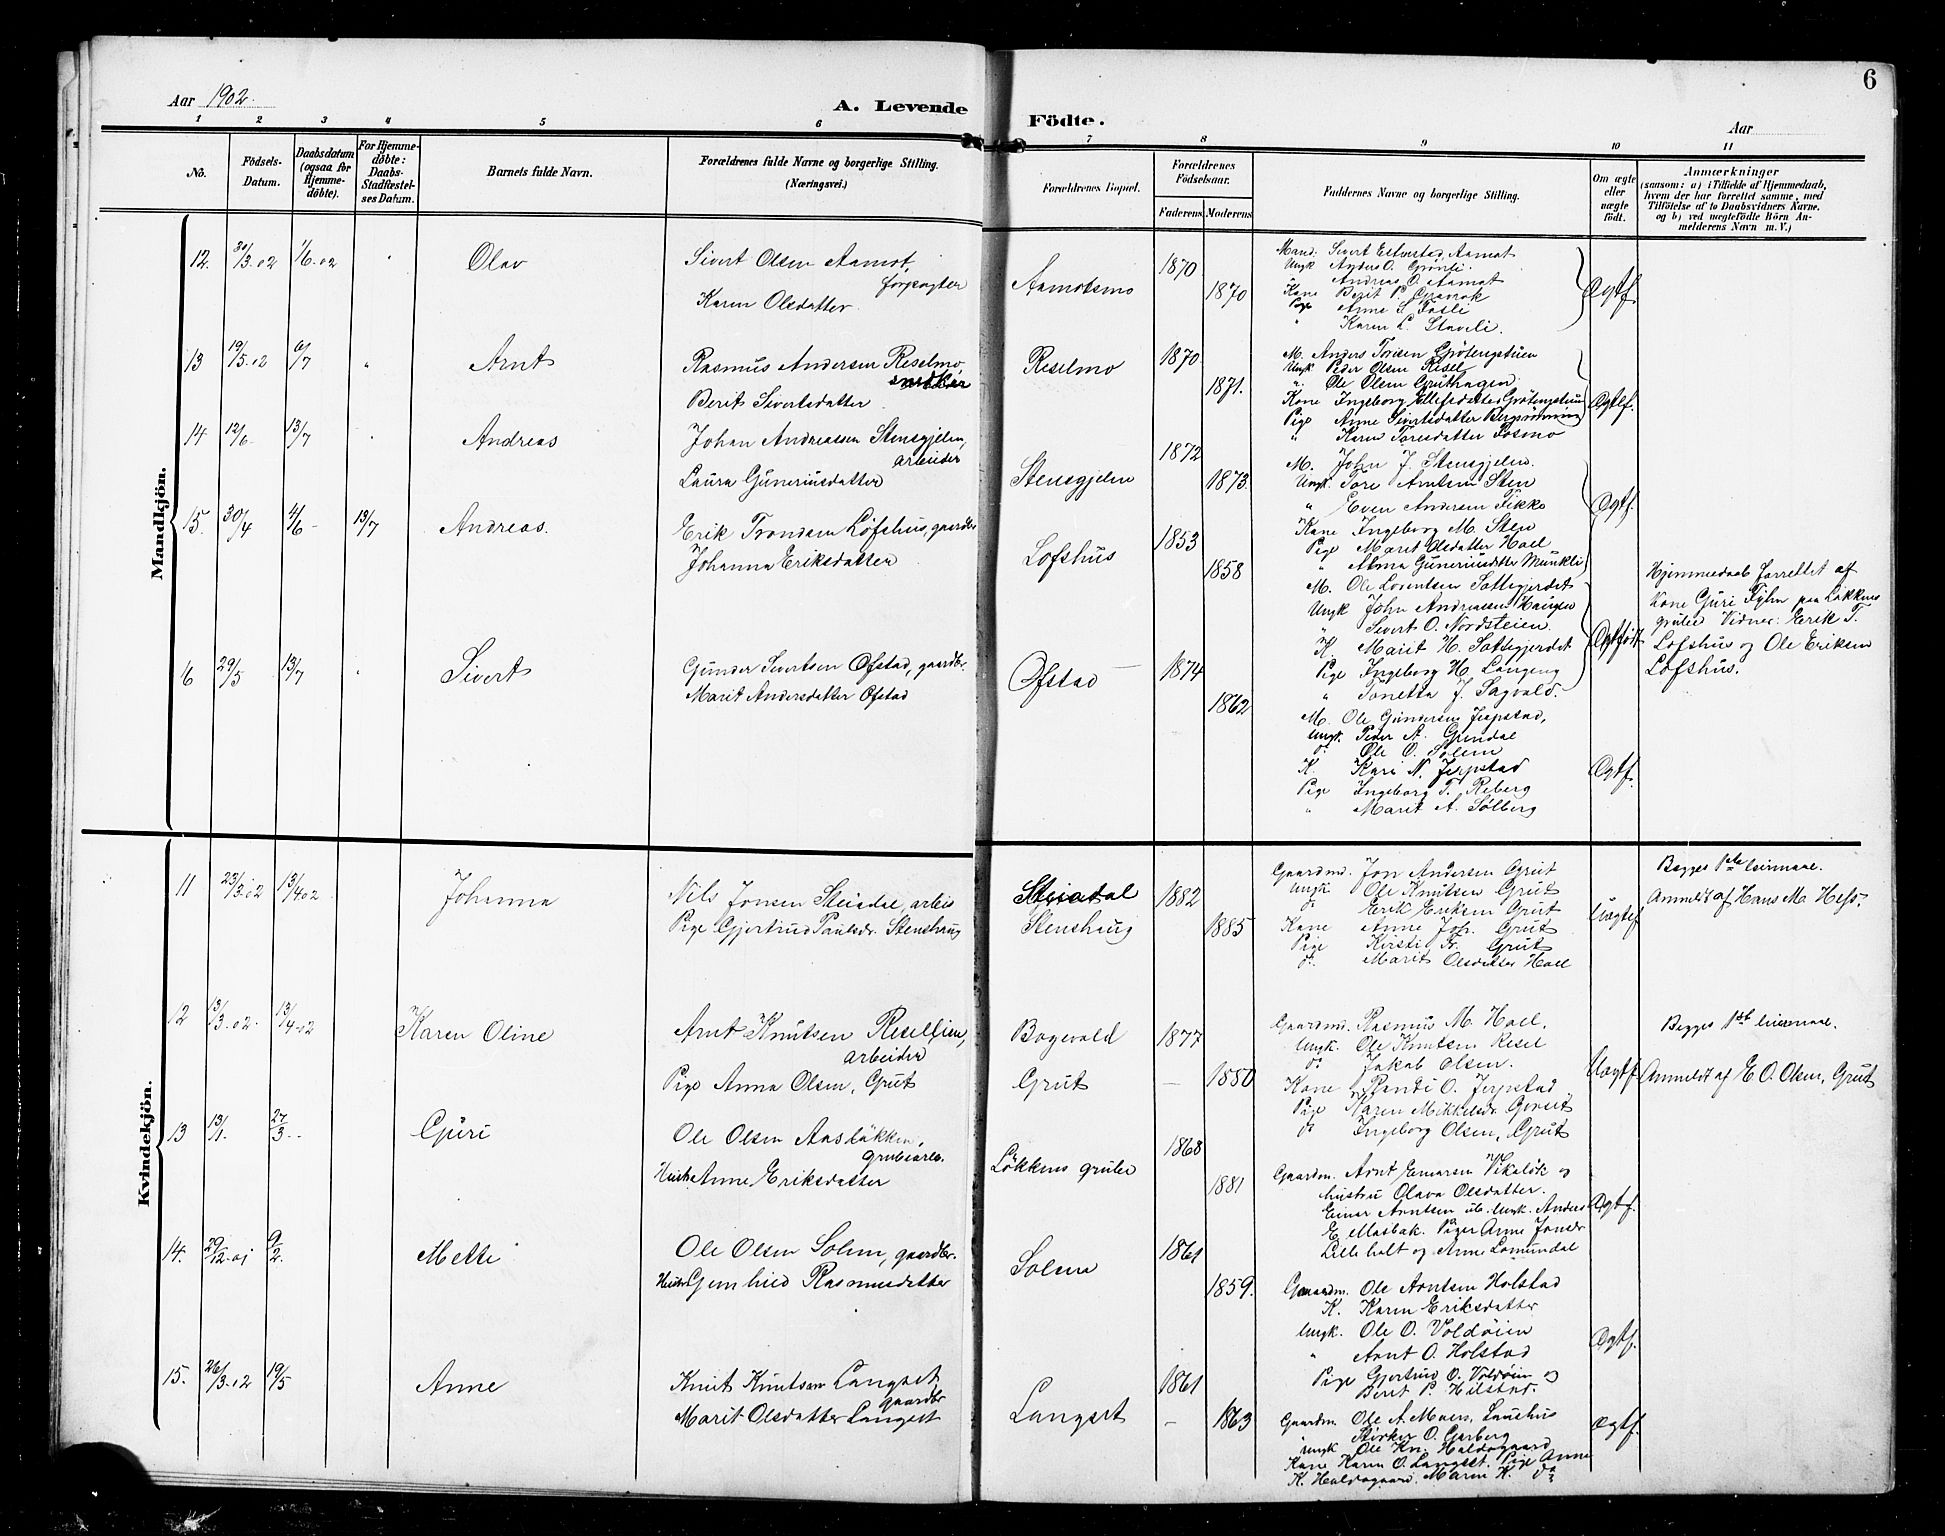 6
Aar 1902.
A. Levende
Födte.
Aar
1 2 3 4 5 6 7 8 9 10 11
No.
Födsels-
Datum.
Daabsdatum
(ogsaa for
Hjemme-
döbte).
For Hjemme-
döbte:
Daabs-
Stadfæstel-
ses Datum.
Barnets fulde Navn.
Forældrenes fulde Navne og borgerlige Stilling.
(Næringsvei.)
Forældrenes Bopæl.
Forældrenes
Födselsaar.
Faderens Moderens
Faddernes Navne og borgerlige Stilling.
Om ægte
eller
uægte
födt.
Anmærkninger
(saasom: a) i Tilfælde af Hjemmedaab,
hvem der har forrettet samme, med
Tilföielse af to Daabsvidners Navne.
og b) ved uægtefödte Börn An-
melderens Navn m. V.)
Mandkjön.
12. 30/3.02 1/6.02 " Olav
Sivert Olsen Aamot,
forpagter
Karen Olsdatter
Aamotsmo 1870 1870
Mand. Sivert Aamot
Ungk Anders O. Grönli.
Andreas O. Aamot
Kone Berit P.
Pige Anne S. Fosli
" Karen L. Stavili.
Ægtf.
13 19/5.02 6/7 " Arnt
Rasmus Andersen Reselmo,
Berit Sivertsdatter
Reselmo 1870 1871.
M. Anders Toresen Grötengstuen
Ungk Peder Olsen Resel
". Ole Olsen Gruthagen
Kone Ingeborg Ellefsdatter Grötengstuen
Pige Anne Sivertsdatter
" Karen Toresdatter Fosmo
Ægtef.
14 12/6- 13/7 " Andreas
Johan Andreassen Stensgjelen,
arbeider
Laura Guneriusdatter
Stensgjelen 1872 1873.
M. John J. Stensgjelen.
Ungk. Tore Arntsen Sten
" Even Andersen Fikke
Kone Ingeborg M. Sten
Pige Marit Olsdatter Hoel
" Alma Guneriusdatter Munkli
Ægtf.
15. 30/4 4/6 - 13/7 Andreas.
Erik Trondsen Lofshus, gaardbr
Johanna Eriksdatter
Lofshus 1853 1858
M. Ole Lorentsen Sattegjerdet
Ungk John Andreassen Haugen
" Sivert O. Nordsteien.
K. Marit H. Sattegjerdet
Pige Ingeborg H. Langeng
" Tonetta J. Sagvold.
Ægtfødt
Hjemmedaab forrettet af
Kone Guri Fylin paa Løkkens
gruber Vidner: Erik T.
Lofshus og Ole Eriksen
Lofshus.
6 29/5 13/7 " Sivert
Gunder Sivertsen Ofstad, gaardbr.
Marit Andersdatter Ofstad
Ofstad 1874 1862
M. Ole Gundersen Jerpstad,
Ungk. Peder A. Grendal
d: Ole O. Solem
K. Kari N. Jerpstad
Pige Ingeborg T. Reberg
" Marit A. Solberg
Ægtf.
Kvindekjön.
11 23/3.02 13/4.02 Johanna
Nils Jonsen Steiadal, arbeid
Pige Gjertrud Paulsdr. Stenshaug
Steiadal
Stenshaug 1882 1885
Gaardmd. Jon Andersen Grut
Ungk. Ole Knutsen Grut
do Erik Eriksen Grut
Kone Anne Joh. Grut
Pige Kirsti Tr. Grut
do. Marit Olsdatter Hoel
Uægtef
Begges 1ste leiermaal.
Anmeldt af Hans M. Hefs-
12 13/3.02. 13/4.02 Karen Oline
Arnt Knutsen Resellien,
arbeider
Pige Anna Olsen, Grut
Bogevold
Grut 1877 - 1880
Gaardmd. Rasmus M. Hoel.
Ungk. Ole Knutsen Resel
do Jakob Olsen.
Kone Randi O. Jerpstad,
Pige Karen Mikkelsdr. Grut
do Ingeborg Olsen, Grut
Uægtf.
Begges 1ste leiermaal.
Anmeldt af E. O. Olsen, Grut
13 13/1. 27/3 .. Guri
Ole Olsen Aasløkken,
grubearb.
Hustr. Anne Eriksdatter
Løkkens gruber 1868 1881
Gaardm. Arnt Einarsen Vikaløk og
hustru Olava Olsdatter.
Einar Arntsen ib. Ungk. Anders
E. Masbak. Piger Anne Jonsdr
Lilleholt og Anne Lomundal
Ægtf.
14. 29/12.01 9/2. Mette
Ole Olsen Solem, gaardbr.
Hustr. Gjenhild Rasmusdatter
Solem 1861 1859.
Gaardm. Ole Arntsen Holstad
K. Karen Eriksdatter
Ungk. Ole O. Voldøien
" Arnt O. Holstad
Pige Gjertrud O. Voldøien og
Beret P. Hilstad.
Ægtf.
15. 26/3.02 19/5 Anne
Knut Knutsen Langset
gaardbr
Marit Olsdatter Langset
Langset 1861 - 1863
Gaardm. Ole A. Moen, Laushus
" Stirker O. Garberg
Ungk Ole Kn. Haldogaard
Kone Karen O. Langset. Pige Anne
K. Haldogaard. Maren K. do
Ægtf.